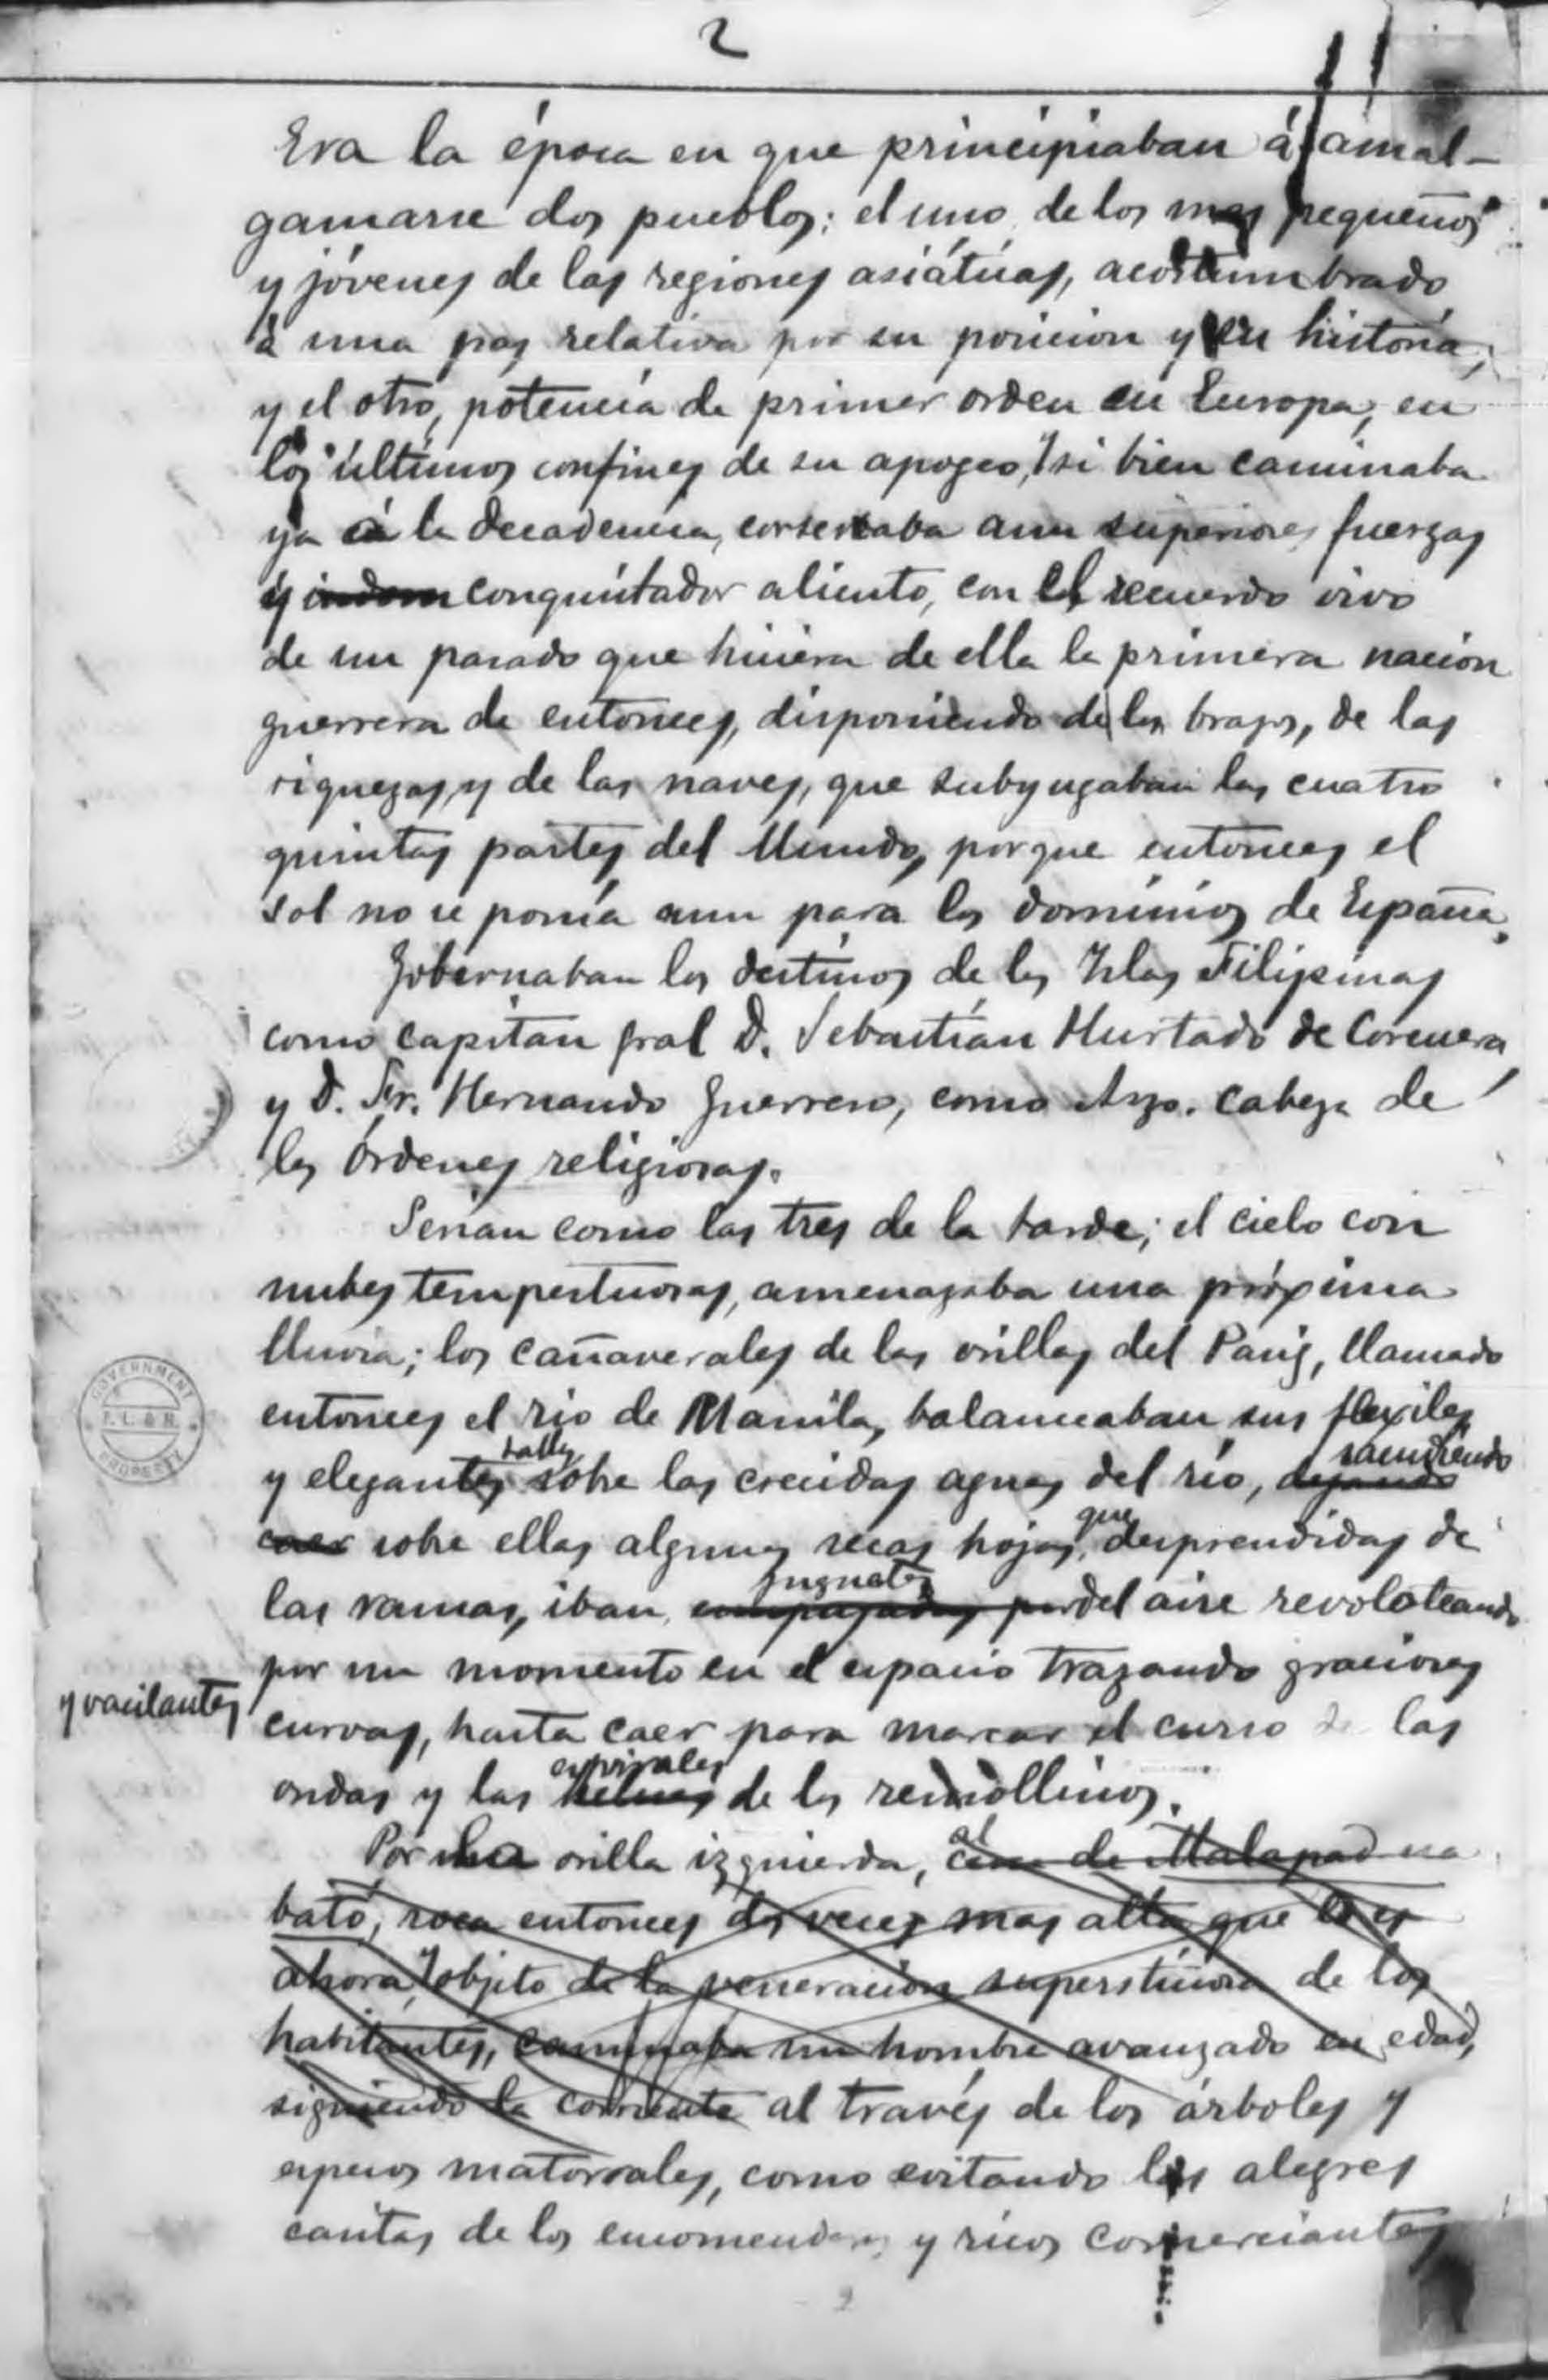 2
Era la época en que principiaban á amal-
gamarse dos pueblos: el uno de los mas pequeños
y jóvenes de las regiones asiáticas, acostumbrado
á una paz relativa por su posicion y su historia;
y el otro, potencia de primer orden en Europa, en
los últimos confines de su apogeo, y si bien caminaba
ya á la decadencia, conservaba aun superiores fuerzas
y indom conquistador aliento, con el recuerdo vivo
de un pasado que hiciera de ella la primera nacion
guerrera de entonces, disponiendo de los brazos, de las
riquezas, y de las naves, que subyugaban las cuatro
quintas partes del Mundo, porque entonces el
sol no se ponía aun para los dominios de España.
Gobernaban los destinos de las Islas Filipinas
como capitan gral D. Sebastián Hurtado de Corcuera
y D. Fr. Hernando Guerrero, como Azo. cabeza de
las órdenes religiosas.
Serían como las tres de la tarde; el cielo con
nubes tempestuosas, amenazaba una próxima
lluvia; los cañaverales de las orillas del Pasig, llamado
entonces el rio de Manila, balanceaban sus flexiles
talles
sacudiendo
y elegantes sobre las crecidas aguas del río, dejando
que
caer sobre ellas algunas secas hojas, desprendidas de
juguetes
las ramas, iban empujadas por del aire revoloteando
por un momento en el espacio trazando graciosas
y vacilantes
curvas, hasta caer para marcar el curso de las
espirales
ondas y las helices de los remollinos.
Por la orilla izquierda, cerca de Malapad na
bató, roca entonces dos veces mas alta que lo es
ahora, y objeto de la veneracion supersticiosa de los
habitantes, caminaba un hombre avanzado en edad,
siguiendo la corriente al través de los árboles y
espesos matorrales, como evitando las alegres
casitas de los encomenderos y ricos comerciantes
GOVERNMENT
PROPERTY